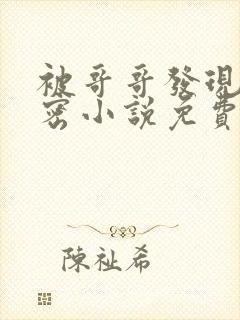 被哥哥發現
密小說免費
陳祉希